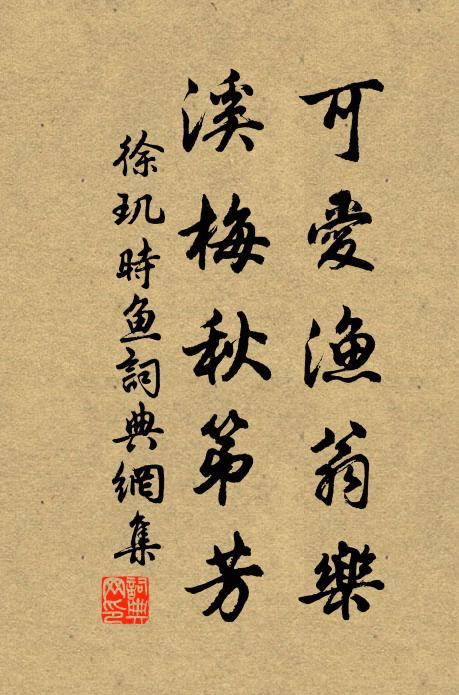 可愛漁翁樂
溪梅秋第芳
徐玑時鱼詞典網集
詞典网印